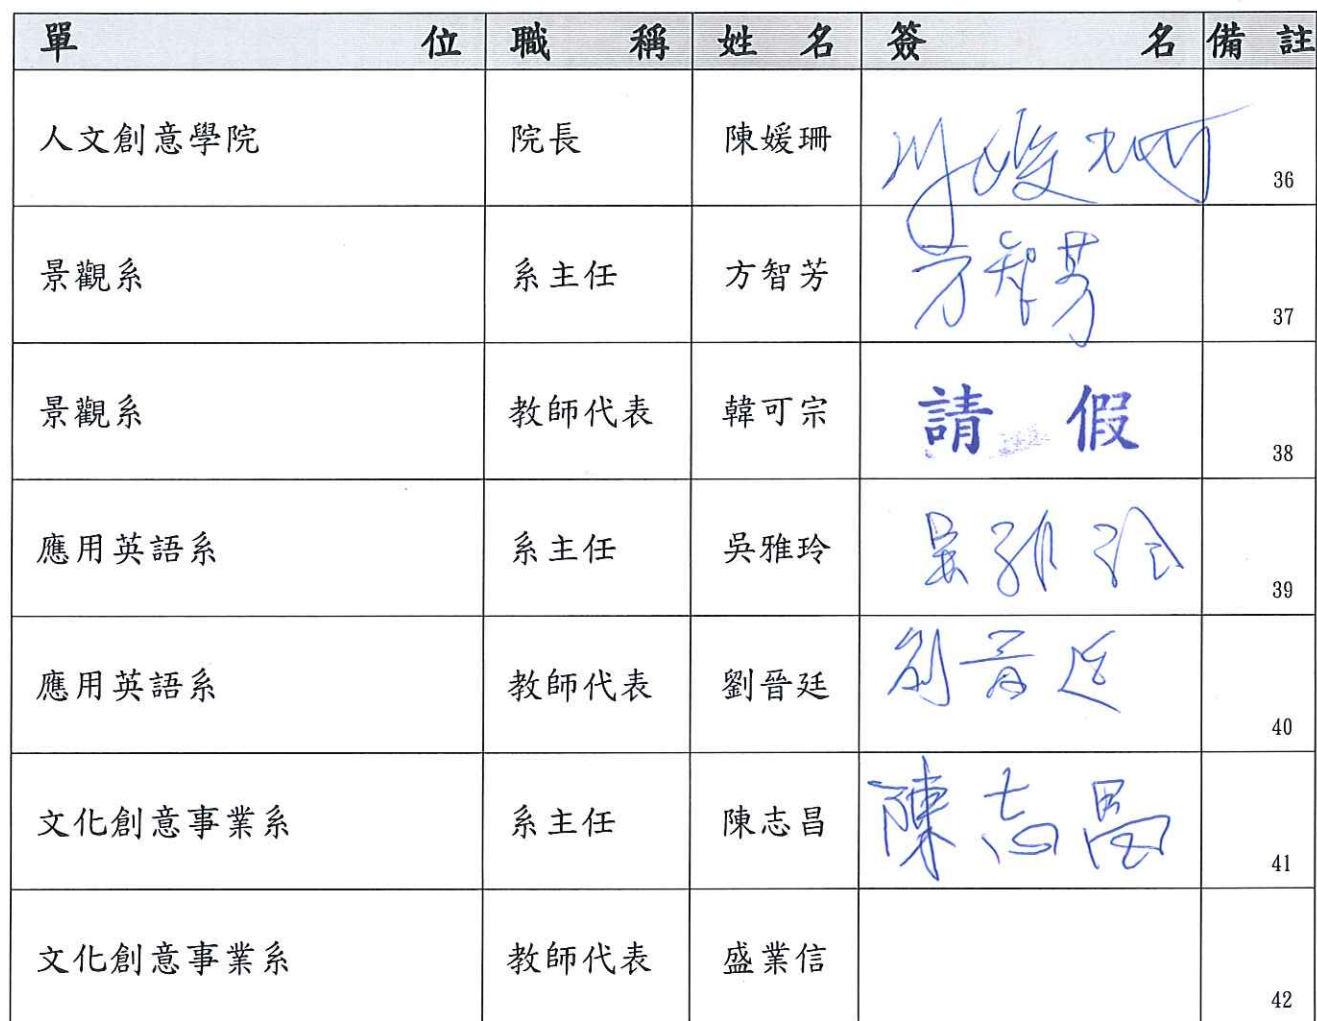 單位 職稱 姓名 簽名 備註
人文創意學院 院長 陳媛珊 36
景觀系 系主任 方智芳 方智芳 37
景觀系 教師代表 韓可宗 請假 38
應用英語系 系主任 吳雅玲 吳雅玲 39
應用英語系 教師代表 劉晉廷 劉晉廷 40
文化創意事業系 系主任 陳志昌 陳志昌 41
文化創意事業系 教師代表 盛業信 42